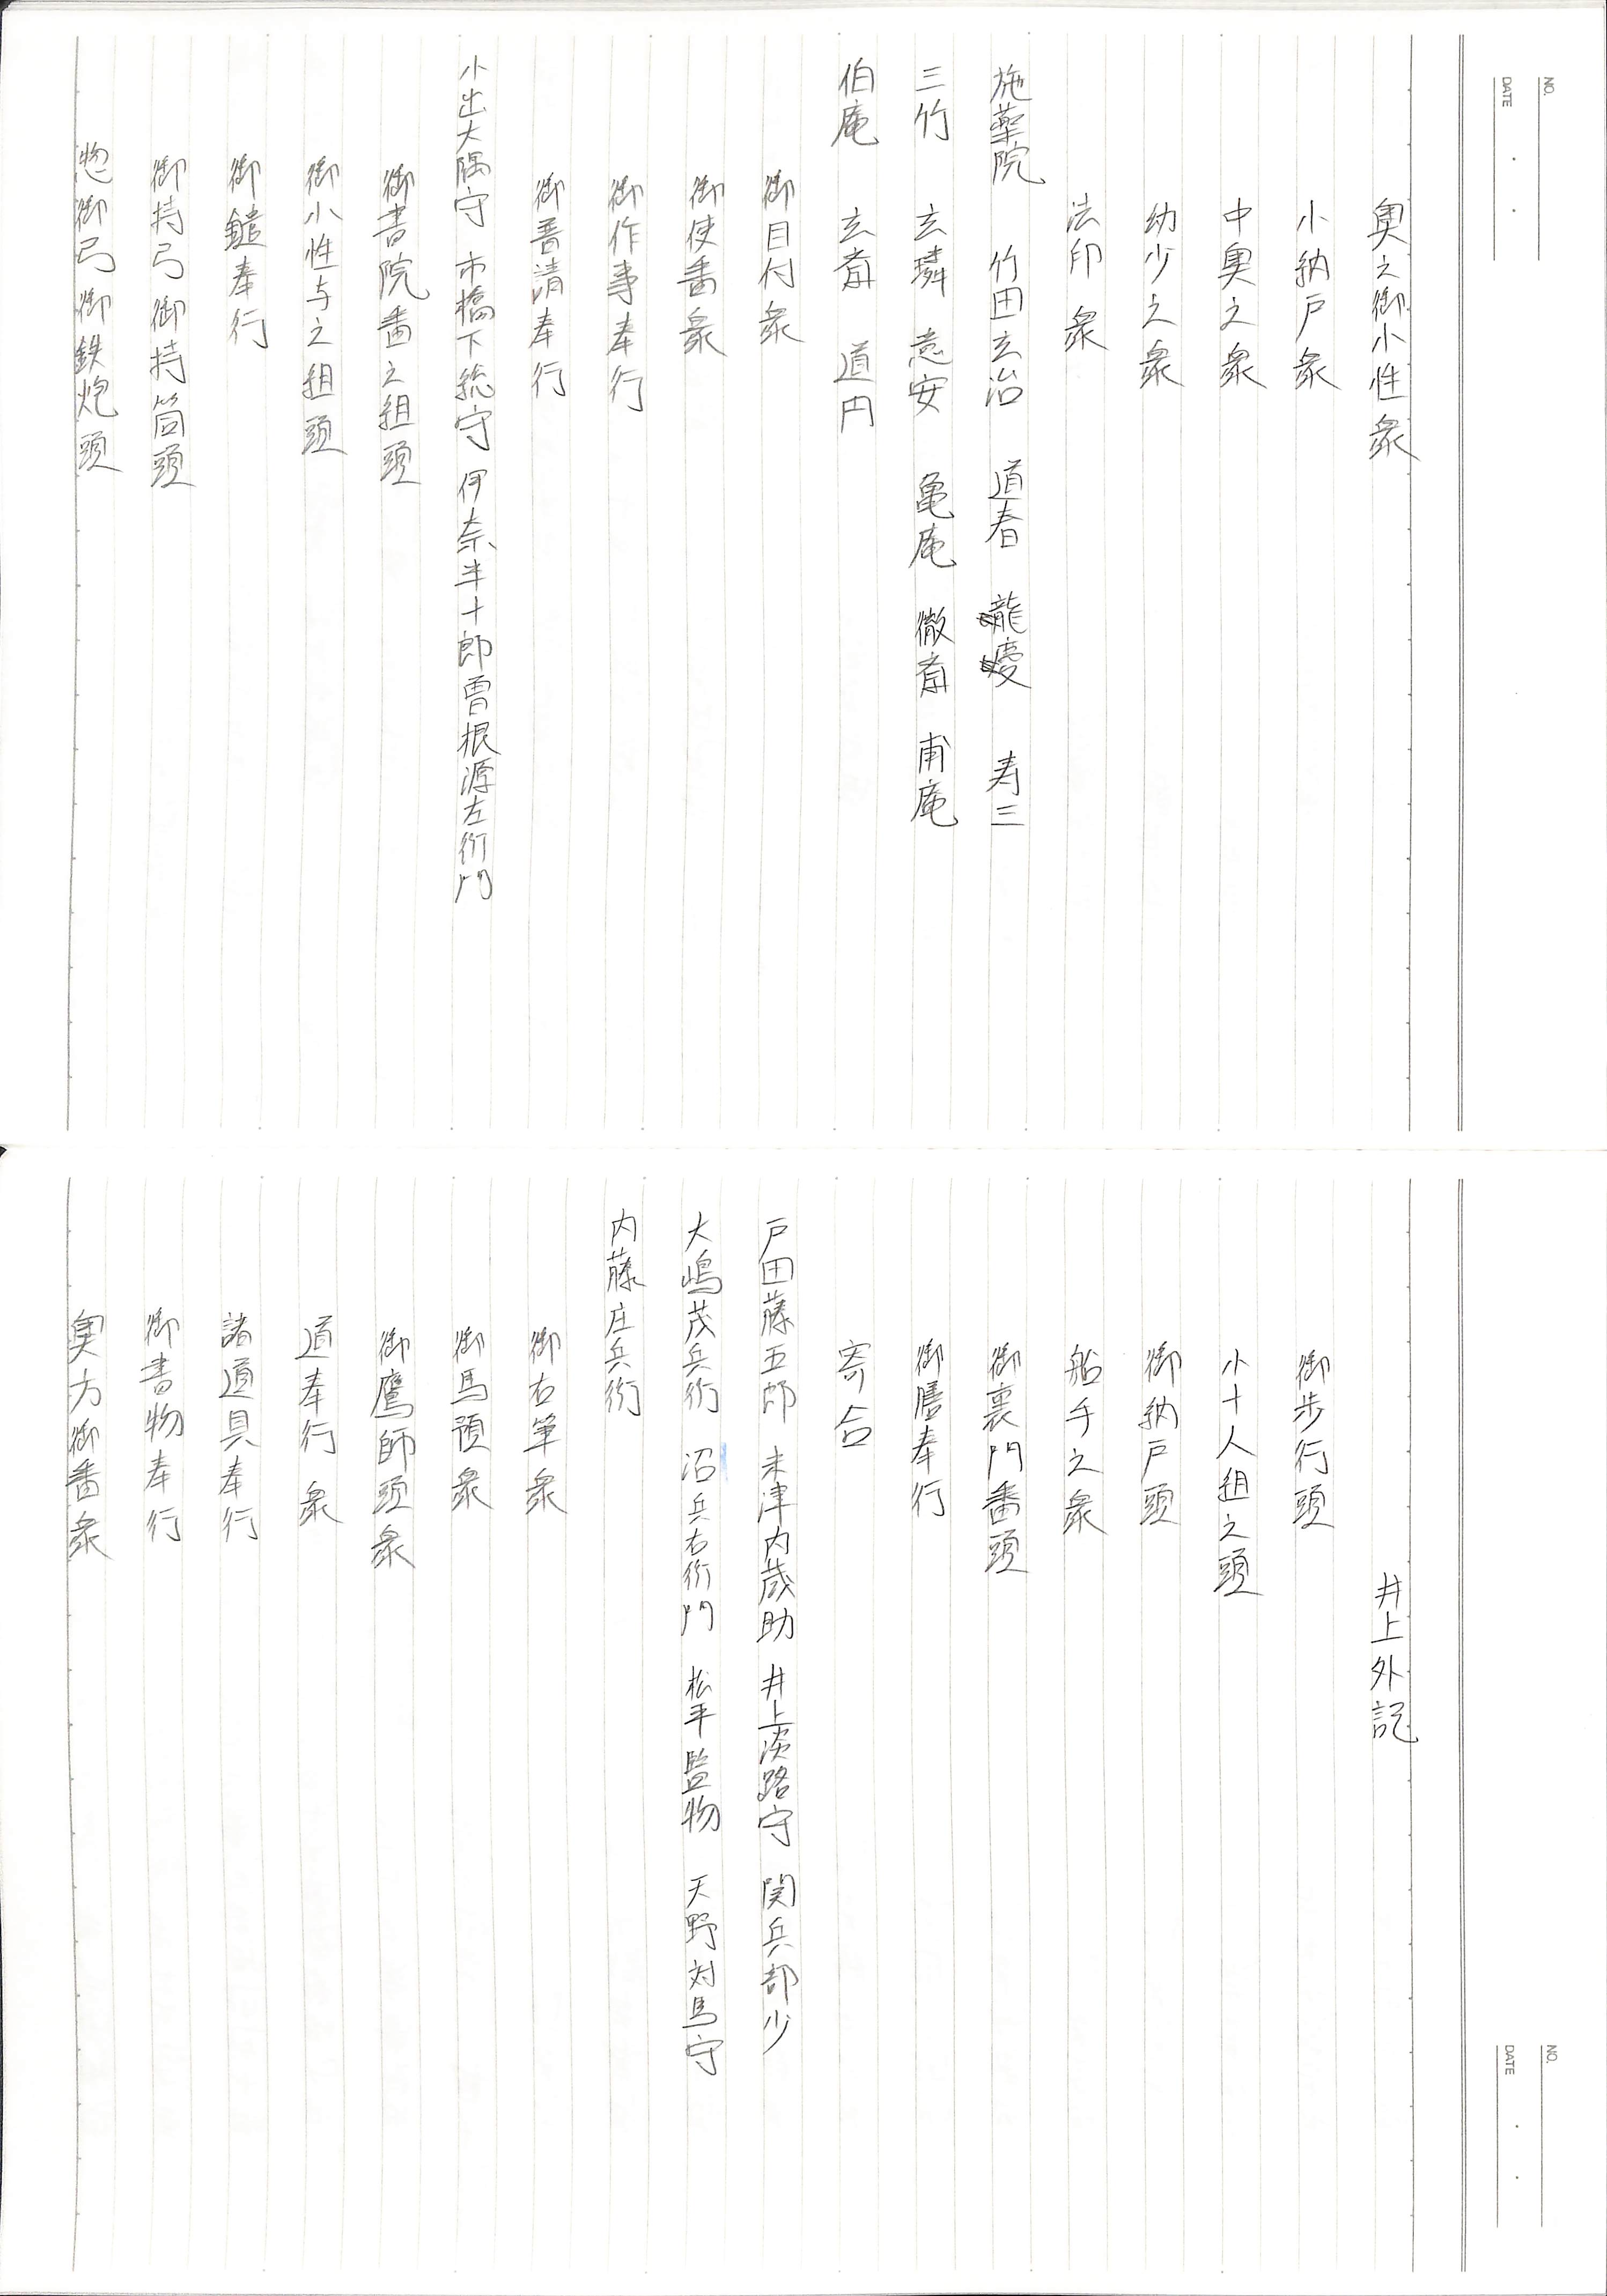 NO.
DATE
奥之御小性衆
小納戸衆
中奥之衆
幼少之衆
法印衆
施薬院 竹田玄治 道春 龍慶 寿三
三竹 玄璘 意安 亀庵 徹斎 甫庵
伯庵 玄斎 道円
御目付衆
御使番衆
御作事奉行
御普請奉行
小出大隅守 市橋下総守 伊奈半十郎 曽根源左衛門
御書院番之組頭
御小性与之組頭
御鑓奉行
御持弓御持筒頭
惣御弓御鉄炮頭
NO.
DATE
井上外記
御歩行頭
小十人組之頭
御納戸頭
船手之衆
御裏門番頭
御膳奉行
寄合
戸田藤五郎 末津内蔵助 井上淡路守 関兵部少
大嶋茂兵衛 沼兵右衛門 松平監物 天野対馬守
内藤庄兵衛
御右筆衆
御馬預衆
御鷹師頭衆
道奉行衆
諸道具奉行
御書物奉行
奥方御番衆